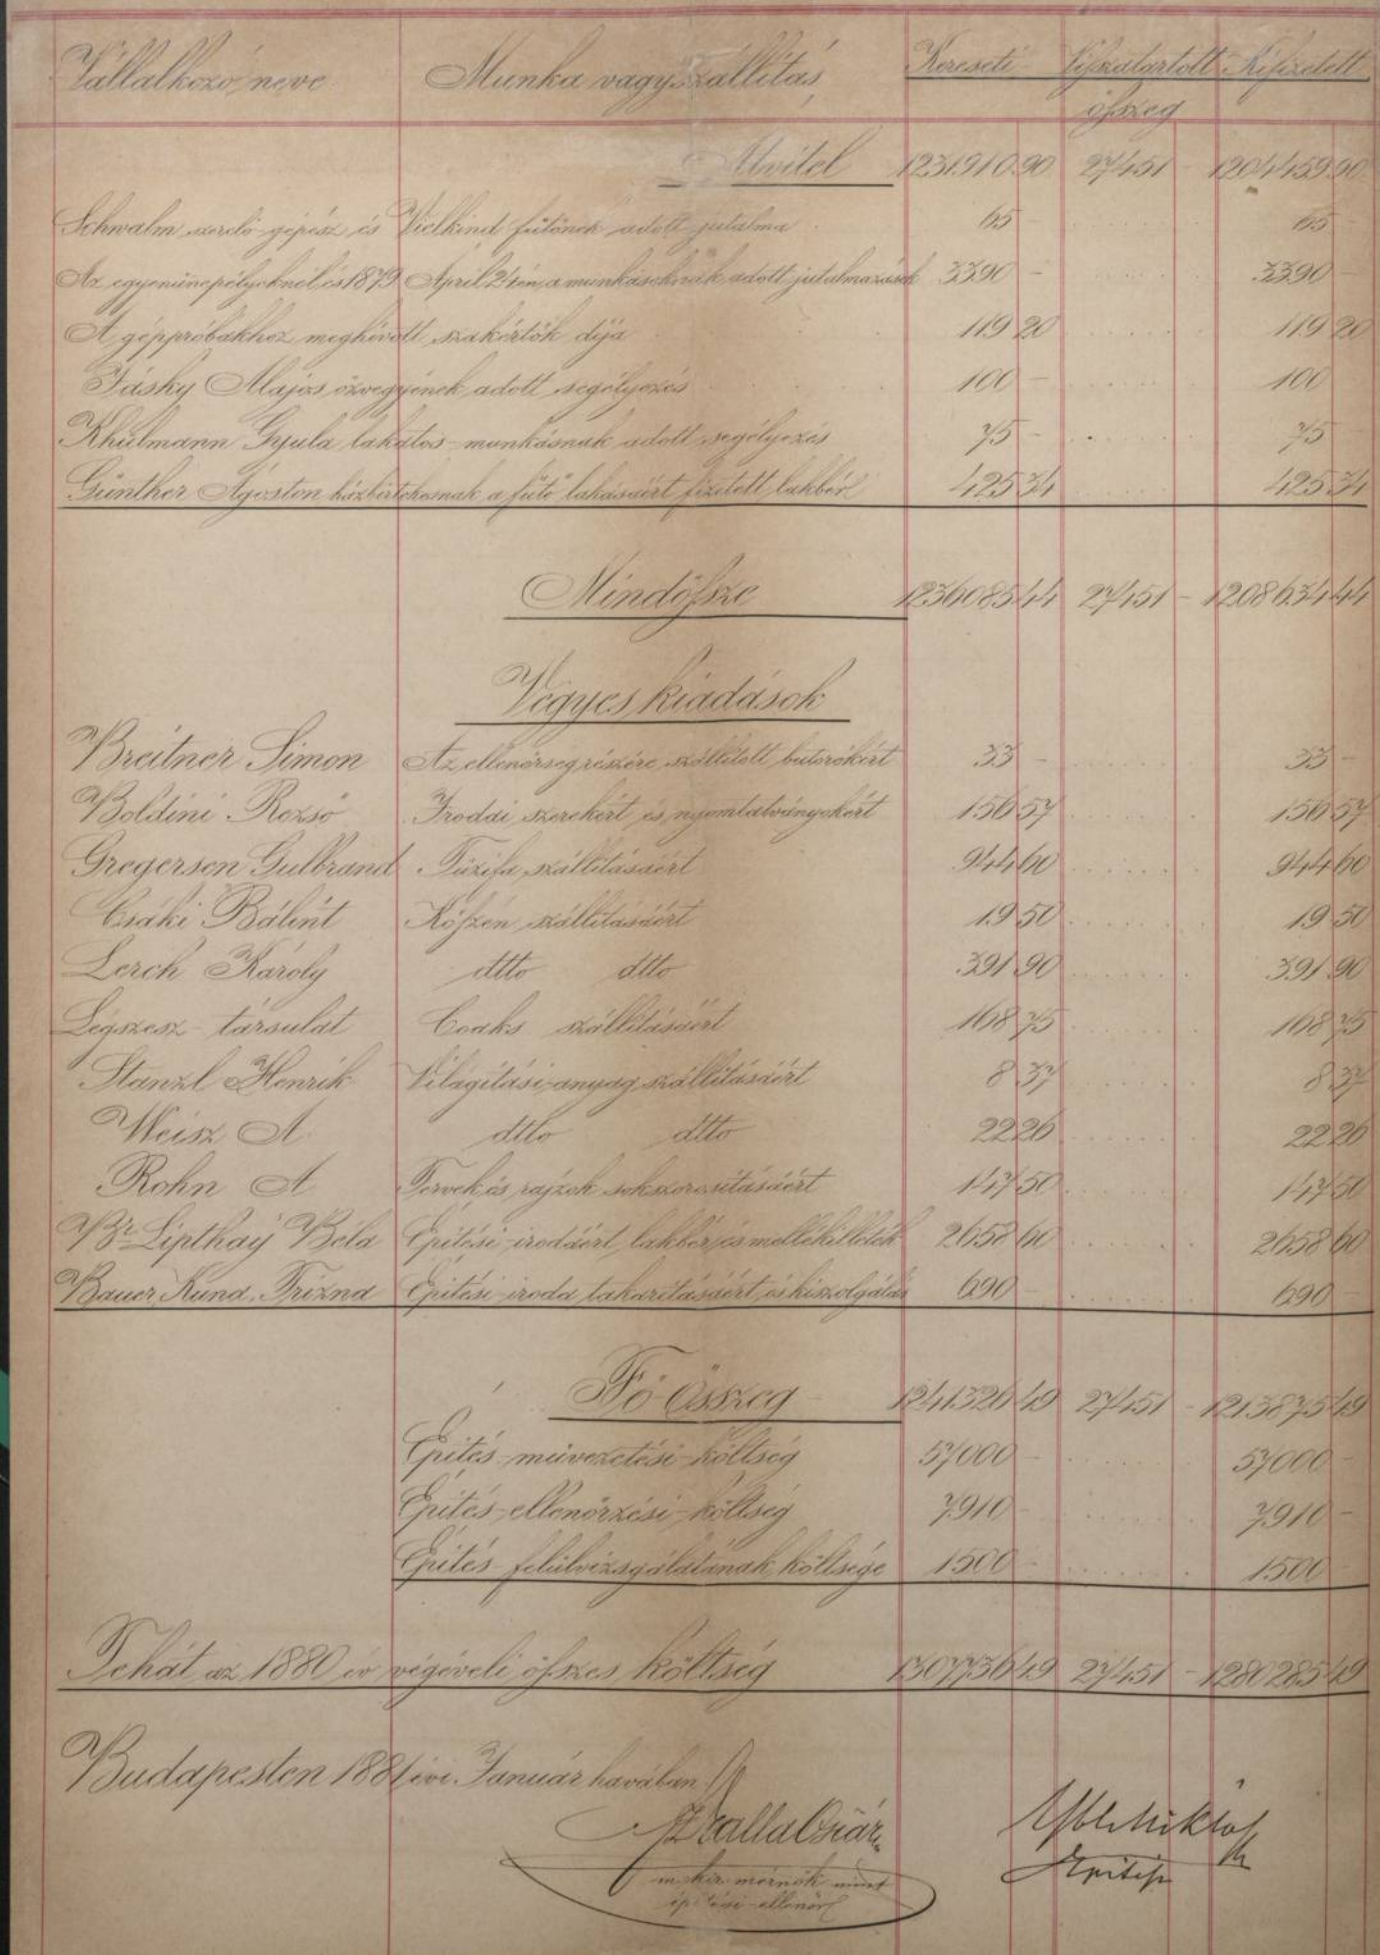 Vállalkozó neve Munka vagy szállítás Kereseti Visszatartott Kifizetett
összeg
Átvitel 1231910 90 27451 - 1204459 90
Schwalm szerelő gépész és Vielkind fűtőnek adott jutalma 65 - 65 -
Az egyes ünnepélyeknél és 1879 April 24én a munkásoknak adott jutalmazások 3390 - 3390 -
A géppróbákhoz meghívott szakértők dija 119 20 119 20
Jásky Alajos özvegyének adott segélyezés 100 - 100
Khulmann Gyula lakatos-munkásnak adott segélyezés 75 - 75 -
Günther Ágoston házbirtokosnak a fűtő lakásáért fizetett lakbér 425 34 425 34
Mindössze 1236085 44 27451 - 1208634 44
Vegyes kiadások
Breitner Simon Az ellenőrség részére szállított bútorokért 33 - 33 -
Boldini Rezső Irodai szerekért és nyomtatványokért 156 57 156 57
Gregersen Gulbrand Tüzifa szállításáért 944 60 944 60
Csáki Bálint Kőszén szállításáért 19 50 19 50
Lerch Károly dtto dtto 391 90 391 90
Légszesz-társulat Coaks szállításáért 168 75 168 75
Stanzl Henrik Világítási-anyag szállításáért 8 37 8 37
Weisz A dtto dtto 22 26 22 26
Rohn A Tervek és rajzok sokszorosításáért 147 50 147 50
Br Lipthay Béla Építési-irodáért lakbér és mellékilleték 2658 60 2658 60
Bauer, Kund, Trizna Építési-iroda takarításáért és kiszolgálás 690 - 690 -
Fő összeg 1241326 49 27451 - 1213875 49
Építés-művezetési-költség 57000 - 57000 -
Építés-ellenőrzési-költség 7910 - 7910 -
Építés-felülvizsgálatának költsége 1500 - 1500 -
Tehát az 1880 év végéveli összes költség 1307736 49 27451 - 1280285 49
Budapesten 1881 évi Január havában
m. kir. mérnök mint
építési-ellenőr
Ybl Miklós
Építész